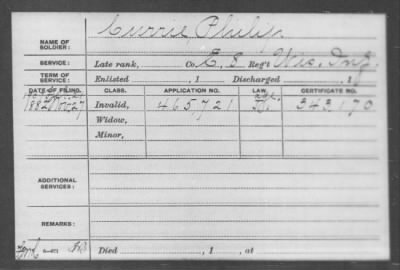 NAME OF SOLDIER: Currie, Philip
SERVICE: Late rank, Co. E, 8 Reg't Wis. Inf.
TERM OF SERVICE: Enlisted , 1 Discharged , 1
DATE OF FILING. CLASS. APPLICATION NO. LAW. CERTIFICATE NO.
1882 Nov. 27 Invalid, 465,721 343,170
Widow,
Minor,
ADDITIONAL SERVICES:
REMARKS:
Died , 1 , at